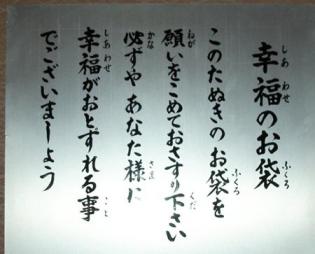 幸福のお袋
このたぬきのお袋を
願いをこめておさすり下さい
必ずやあなた様に
幸福がおとずれる事
でございましょう